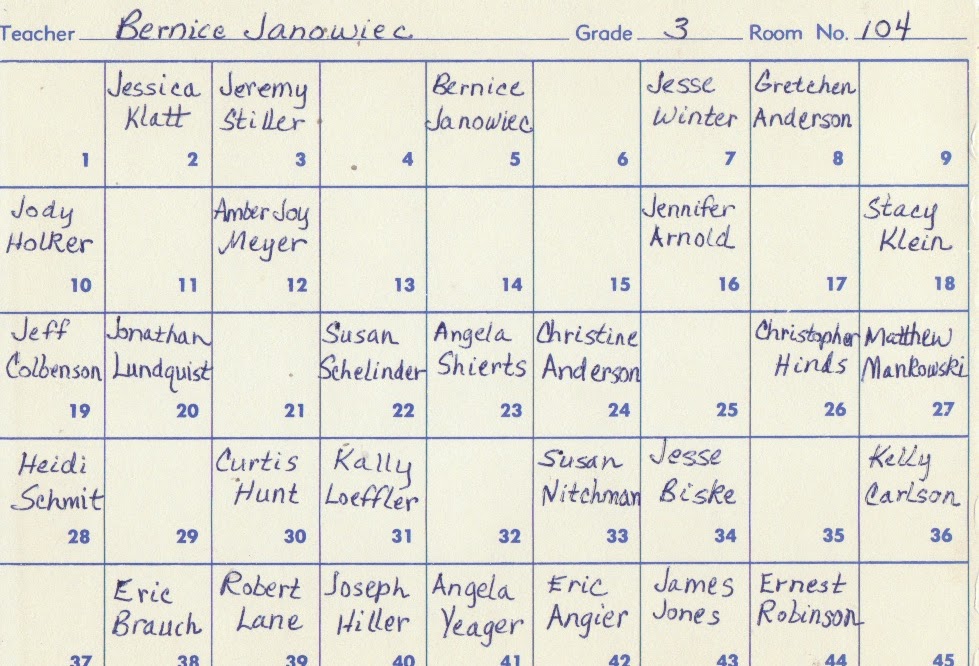 Teacher Bernice Janowiec Grade 3 Room No. 104
Jessica Jeremy Bernice Jesse Gretchen
Klatt Stiller Janowiec Winter Anderson
1 2 3 4 5 6 7 8 9
Jody Amber Joy Jennifer Stacy
Holker Meyer Arnold Klein
10 11 12 13 14 15 16 17 18
Jeff Jonathan Susan Angela Christine Christopher Matthew
Colbenson Lundquist Schelinder Shierts Anderson Hinds Mankowski
19 20 21 22 23 24 25 26 27
Heidi Curtis Kally Susan Jesse Kelly
Schmit Hunt Loeffler Nitchman Biske Carlson
28 29 30 31 32 33 34 35 36
Eric Robert Joseph Angela Eric James Ernest
Brauch Lane Hiller Yeager Angier Jones Robinson
37 38 39 40 41 42 43 44 45